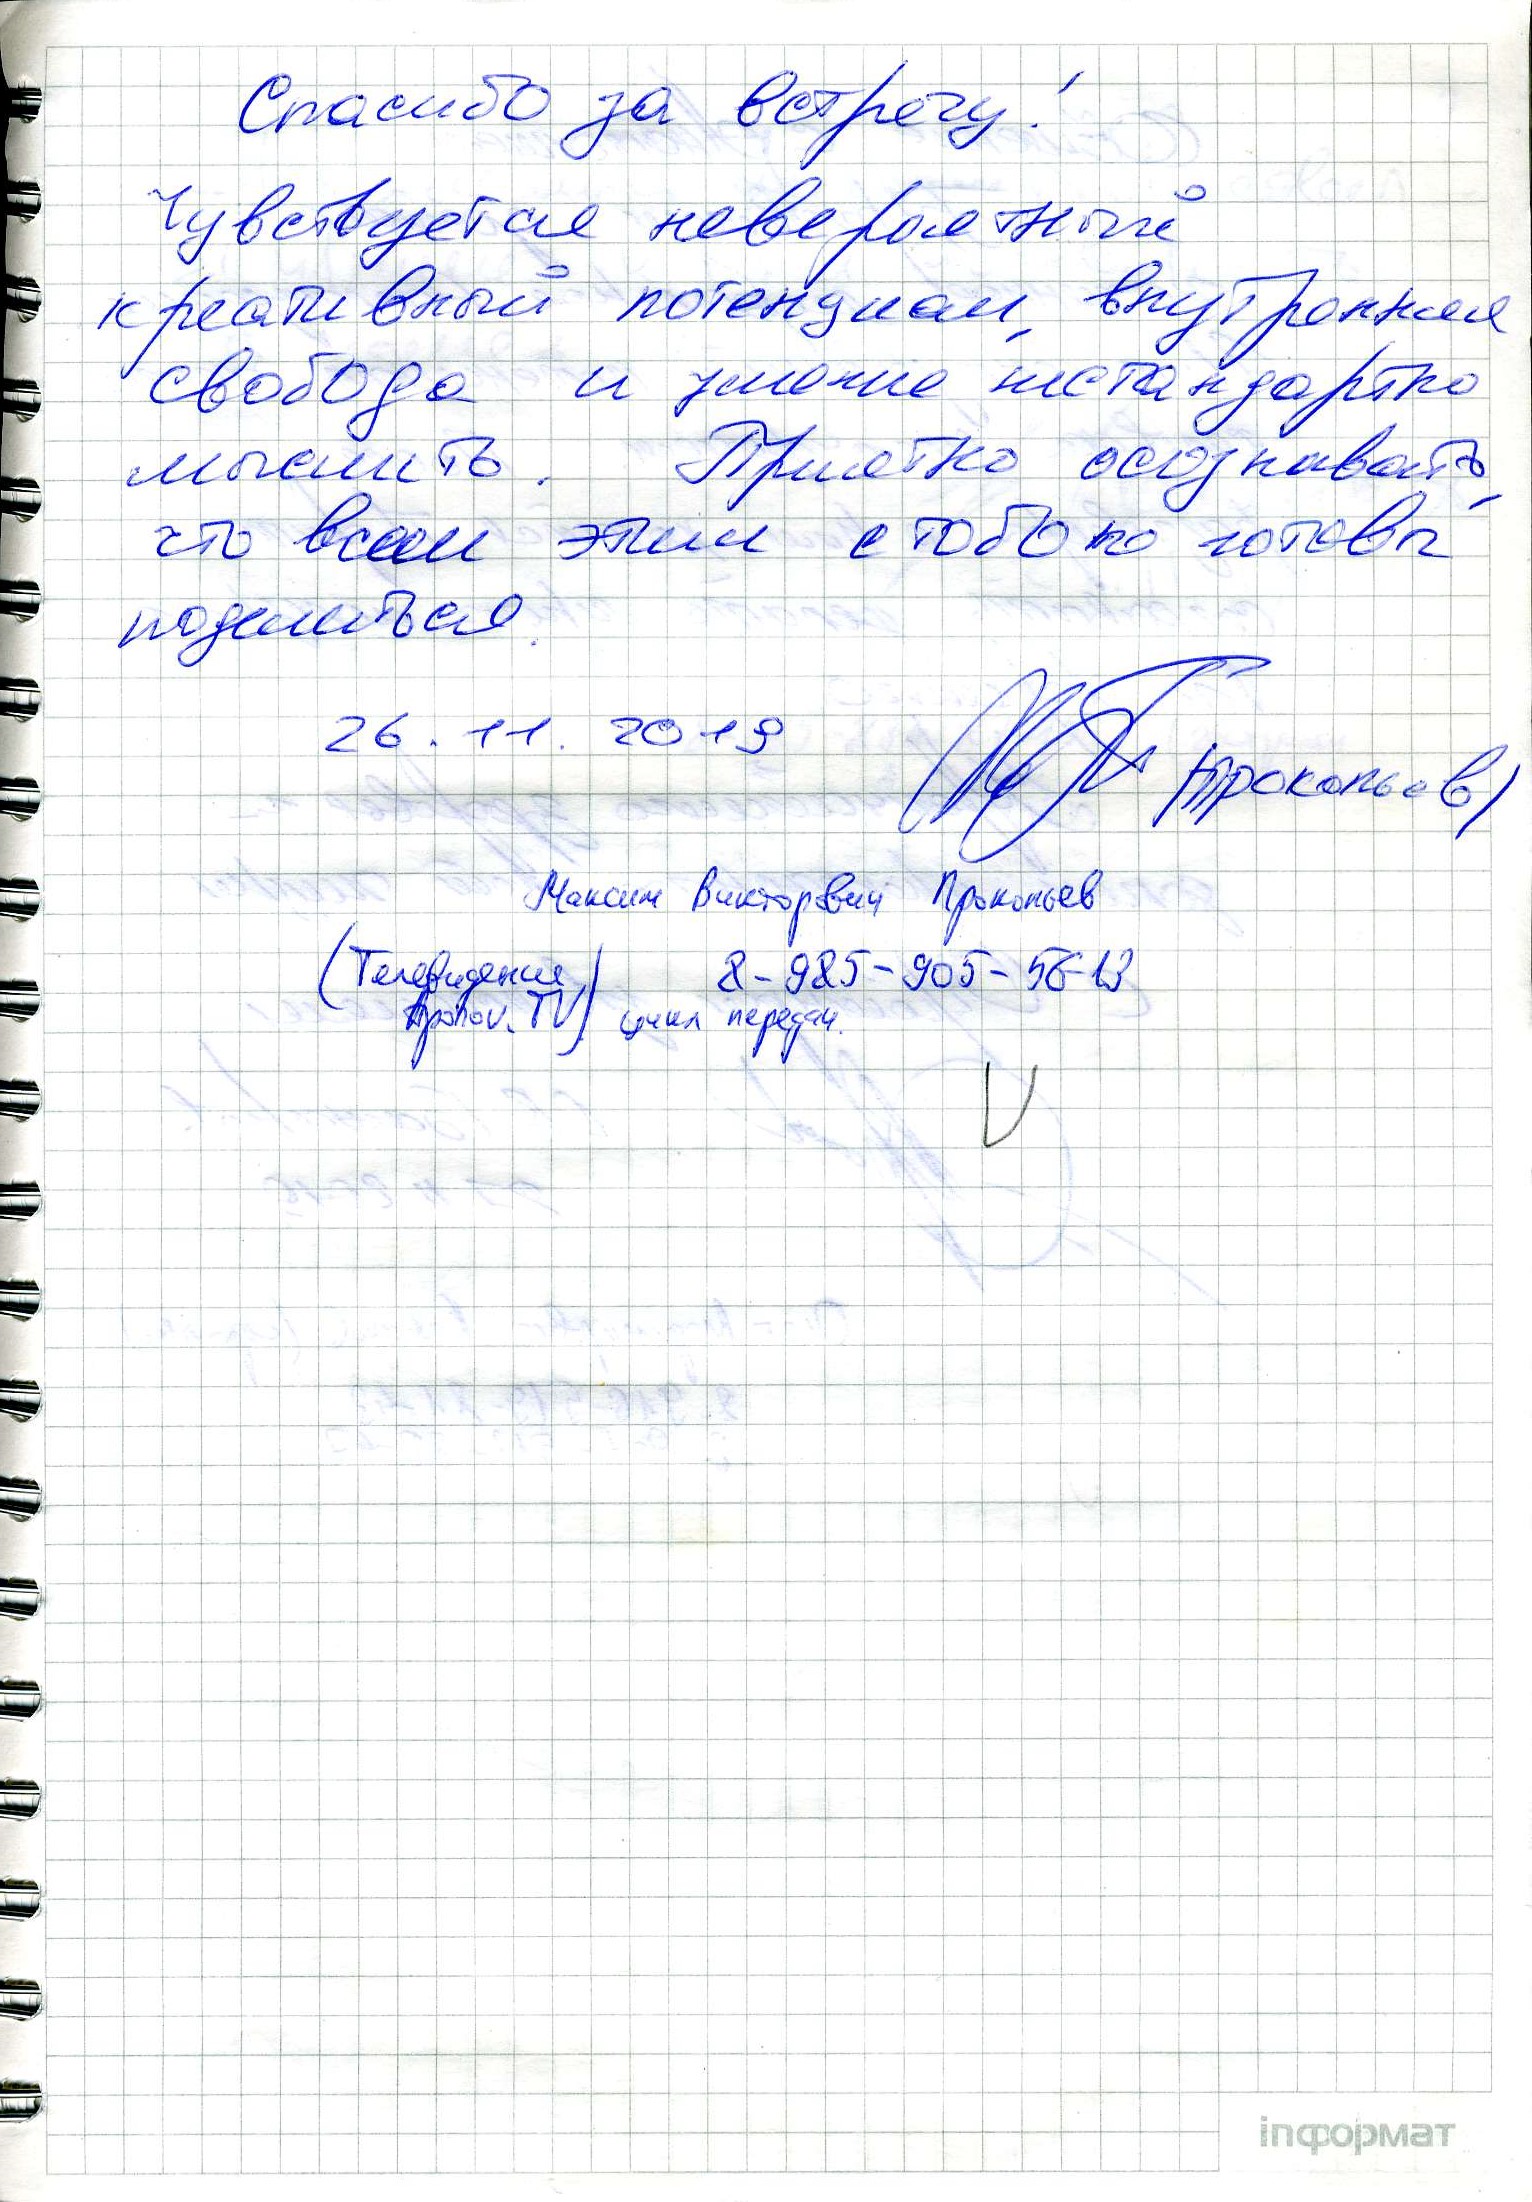 Спасибо за встречу!
Чувствуется невероятный
креативный потенциал, внутренняя
свобода и умение нестандартно
мыслить. Приятно осознавать,
что всем этим с тобою готовы
поделиться.
26.11.2019
(Прокопьев)
Максим Викторович Прокопьев
(Телевидение 8-985-905-56-13
TV) цикл передач.
iпформат